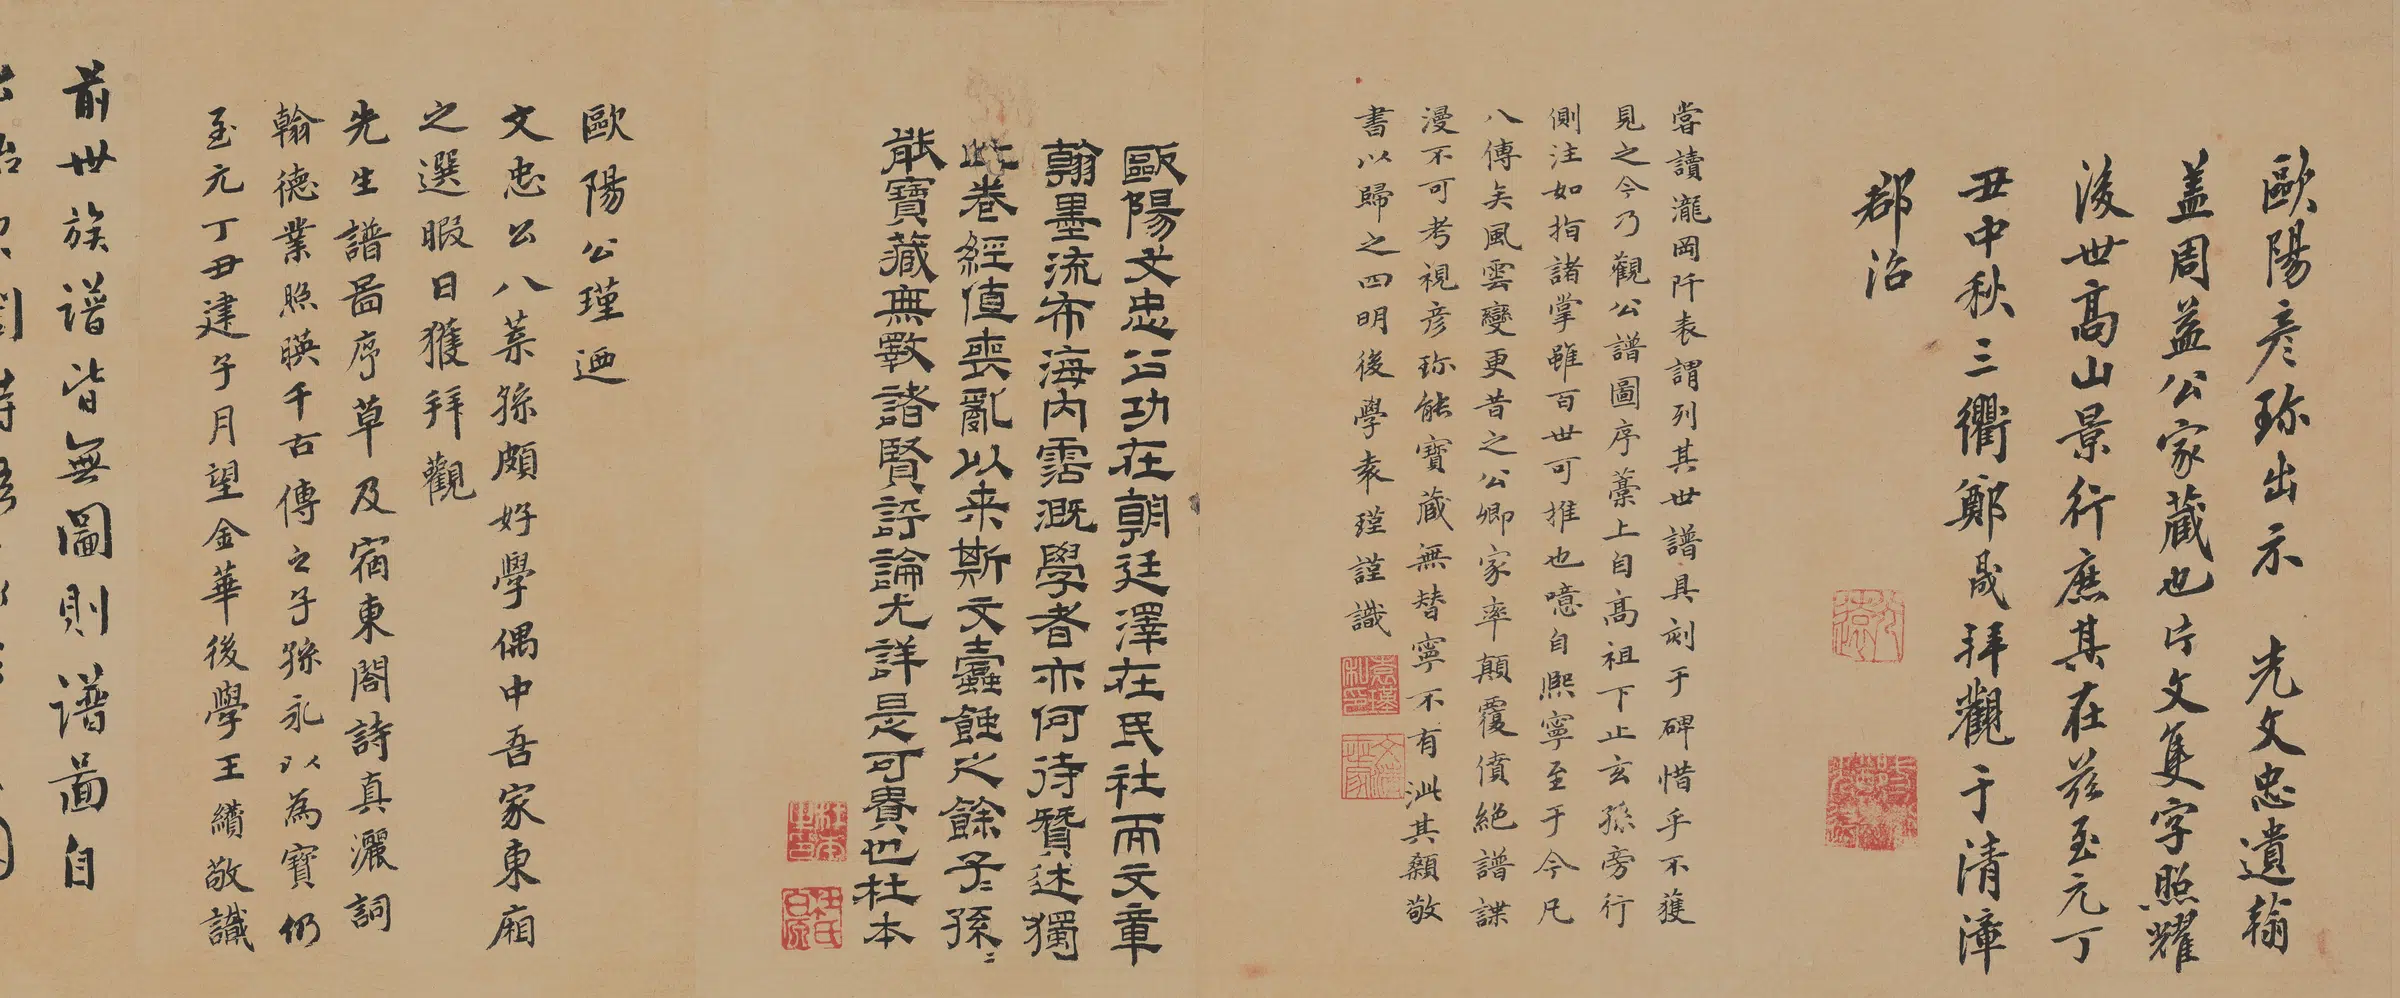 歐陽彥珎出示　先文忠遺翰
盖周益公家藏也片文隻字照耀
後世高山景行庶其在茲至元丁
丑中秋三衢鄭晟拜觀于清漳
郡治
甞讀瀧岡阡表謂列其世譜具刻于碑惜乎不獲
見之今乃觀公譜圖序藁上自高祖下止玄孫旁行
側注如指諸掌雖百世可推也噫自熈寧至于今凡
八傳矣風雲變更昔之公卿家率顛覆僨絕譜諜
漫不可考視彥珎能寶藏無替寧不有泚其顙敬
書以歸之四明後學袁瑾謹識
袁瑾私印
歐陽文忠公功在朝廷澤在民社而文章
翰墨流布海內霑溉學者亦何待賛述獨
此卷經值喪亂以来斯文蠧蝕之餘子〻孫〻
能寶藏無斁諸賢評論尤詳是可貴也杜本
杜本
杜氏
歐陽公瑾廼
文忠公八葉孫頗好學偶中吾家東廂
之選暇日獲拜觀
先生譜啚序草及宿東閣詩真灑詞
翰德業照暎千古傳之子孫永以為寶仍
至元丁丑建子月望金華後學王繢敬識
前世族譜皆無圖則譜啚自